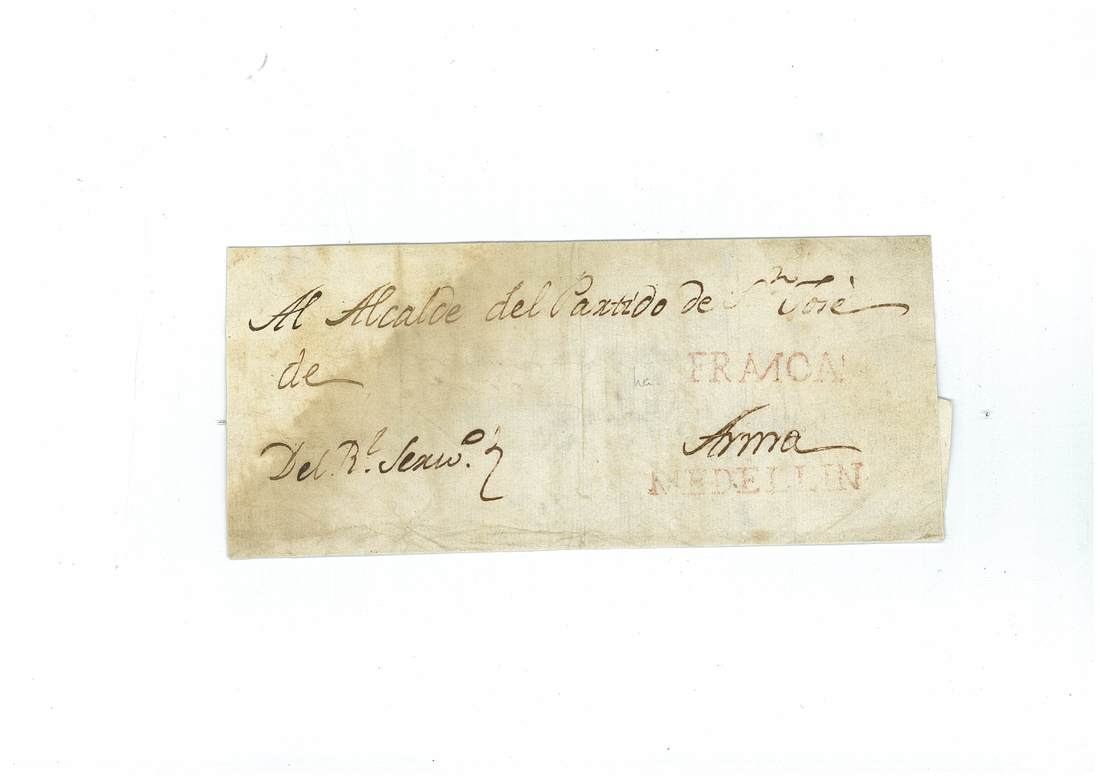 Al Alcalde del Partido de Sn Josè
de
ha.
FRANCA.
Arma
Del Rl. Servo.
MEDELLIN